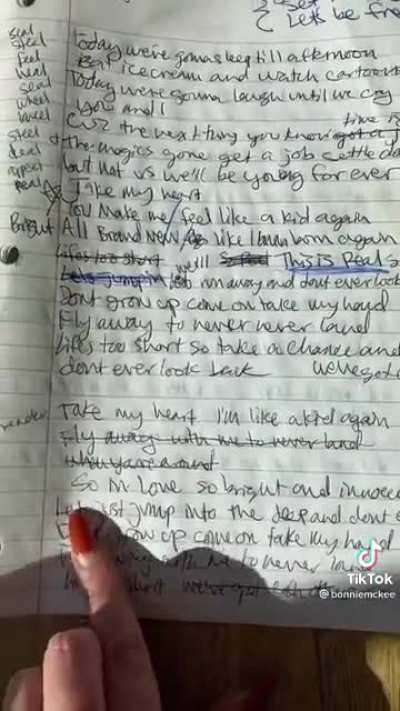 Lets be fre
seal
steel
feel
heal
seal
wheel
steel
deal
appeal
real
Today we're gonna sleep till afternoon
Eat icecream and watch cartoons
Today we're gonna laugh until we cry
you and I
Cuz the next thing you know got a j
time is
the magics gone get a job settle do
but not us we'll be young for ever
Take my heart
You Make me feel like a kid again
Bright
All Brand New like I been born again
Lifes too short we'll So Real This is Real
Lets jump in run away and dont ever look
Dont grow up come on take my hand
Fly away to never never land
Lifes too short so take a chance and
dont ever look back we've got
Take my heart I'm like a kid again
Fly away with me to never land
when you're around
So in Love so bright and innoce
Let just jump into the deep and dont e
grow up come on take my hand
away with me to never land
short we've got
TikTok
@bonniemckee